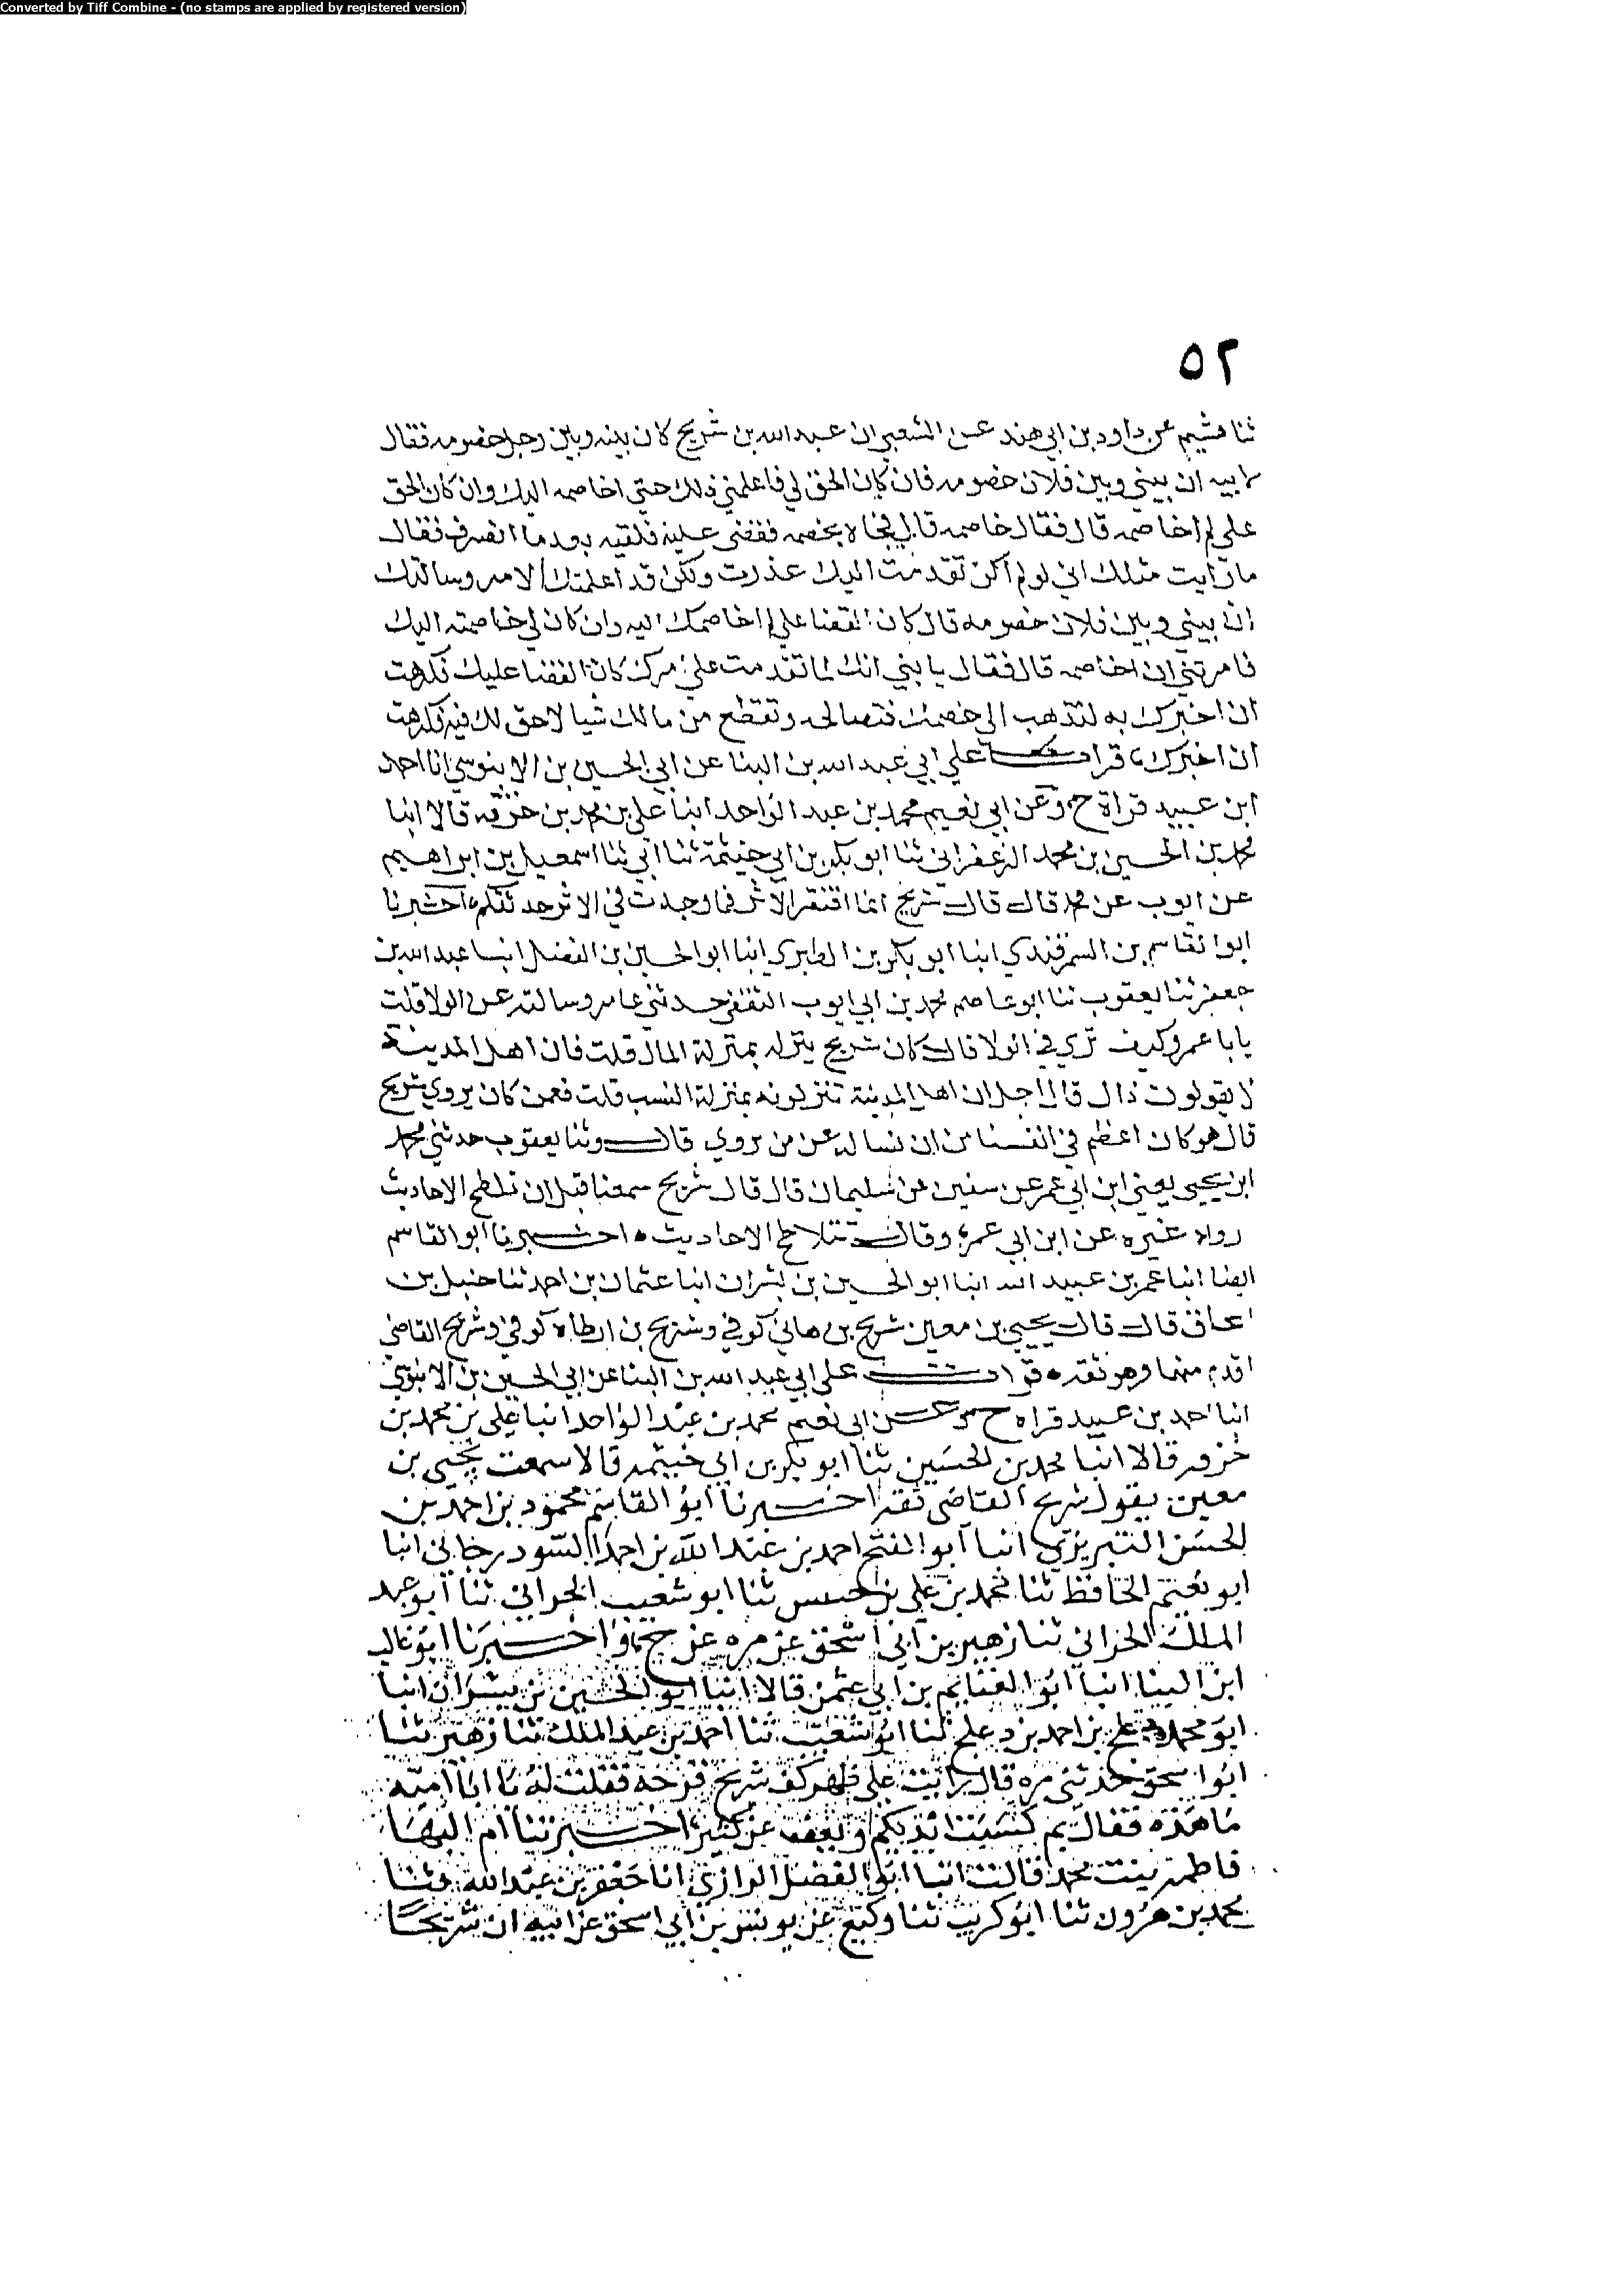 Converted by Tiff Combine - (no stamps are applied by registered version)
٥٢
ثنا هشيم عن داود بن ابي هند عن الشعبي ان عبد الله بن شريح كان بينه وبين رجل خصومه فقال
لابيه ان بيني وبين فلان خصومه فان كان الحق لي فاعلمني ذلك حتى اخاصمه اليك وان كان الحق
علي لم اخاصمه قال فقال خاصمه قال فجاء بخصمه فقضى عليه فلقيه بعدما انصرف فقال
ما رايت مثلك اني لو لم اكن تقدمت اليك عذرت ولكن قد اعلمتك الامر وسالتك
ان بيني وبين فلان خصومه قال كان القضا علي لم اخاصمك اليه وان كان لي خاصمته اليك
فامرتني ان اخاصمه قال فقال يا بني انك لما تقدمت علي امرك كان القضا عليك فكرهت
ان اخبرك به لتذهب الى خصمك فتصالحه وتقتطع من مالك شيا لا حق لك فيه فكرهت
ان اخبرك، قرات علي ابي عبد الله بن البنا عن ابي الحسين بن الابنوسي انا احمد
ابن عبيد قراة ح وعن ابي نعيم محمد بن عبد الواحد انبا علي بن محمد بن خزفه قالا انبا
محمد بن الحسين بن محمد الزعفراني ثنا ابو بكر بن ابي خيثمة ثنا ابي ثنا اسمعيل بن ابراهيم
عن ايوب عن محمد قال قال شريح انما اقتفر الاثر فما وجدت في الاثر حدثتكم، اخبرنا
ابوا القاسم بن السمرقندي انبا ابو بكر بن الطبري انبا ابو الحسين بن الفضل انبا عبد الله بن
جعفر ثنا يعقوب ثنا ابو عاصم محمد بن ابي ايوب الثقفي حدثني عامر وسالته عن الولا قلت
يابا عمرو كيف تري في الولا قال كان شريح ينزله بمنزلة المال قلت فان اهل المدينة
لا يقولون ذاك قال اجل ان اهل المدينة تنزلونه بمنزلة النسب قلت فعمن كان يروي شريح
قال هو كان اعظم في انفسنا من ان نساله عن من يروي قال وثنا يعقوب حدثني محمد
ابن يحيى يعني ابن ابي عمر عن سفين عن سليمان قال قال شريح سمعنا قبل ان تلطخ الاحاديث
رواه غيره عن ابن ابي عمر، وقال تتلاطخ الاحاديث، اخبرنا ابو القاسم
ايضا انبا عمر بن عبيد الله انبا ابو الحسين بن بشران انبا عثمان بن احمد ثنا حنبل بن
اسحاق قال قال يحيى بن معين شريح بن هاني كوفي وشريح بن ارطاه كوفي وشريح القاضي
اقدم منهما وهو ثقه، قرات علي ابي عبد الله بن البنا عن ابي الحسين بن الابنوسي
انبا احمد بن عبيد قراه ح وعن ابي نعيم محمد بن عبد الواحد انبا علي بن محمد بن
خزفه قالا انبا محمد بن الحسين ثنا ابو بكر بن ابي خيثمه قالا سمعت يحيى بن
معين يقول شريح القاضي ثقه اخبرنا ابو القاسم محمود بن احمد بن
الحسن التبريزي انبا ابو الفتح احمد بن عبد الله بن احمد السودرجاني انبا
ابو نعيم الحافظ ثنا محمد بن علي بن حبيش ثنا ابو شعيب الحراني ثنا ابو عبد
الملك الحراني ثنا زهير بن ابي اسحق عن مره عن ح، واخبرنا ابو غالب
ابن البنا انبا ابو الغنايم بن ابي عثمن قالا انبا ابو الحسين بن بشران انبا
ابو محمد دعلج بن احمد بن دعلج ثنا ابو شعيب ثنا احمد بن عبد الملك ثنا زهير ثنا
ابوا سحق حدثني مره قال رايت علي ظهر كف شريح قرحة فقلت له يا ابا اميه
ما هذه فقال بم كسبت ايديكم ويعفو عن كثير، اخبرتنا ام البها
فاطمه بنت محمد قالت انبا ابو الفضل الرازي انا جعفر بن عبد الله ثنا
محمد بن هرون ثنا ابو كريب ثنا وكيع عن يونس بن ابي اسحق عن ابيه ان شريحًا